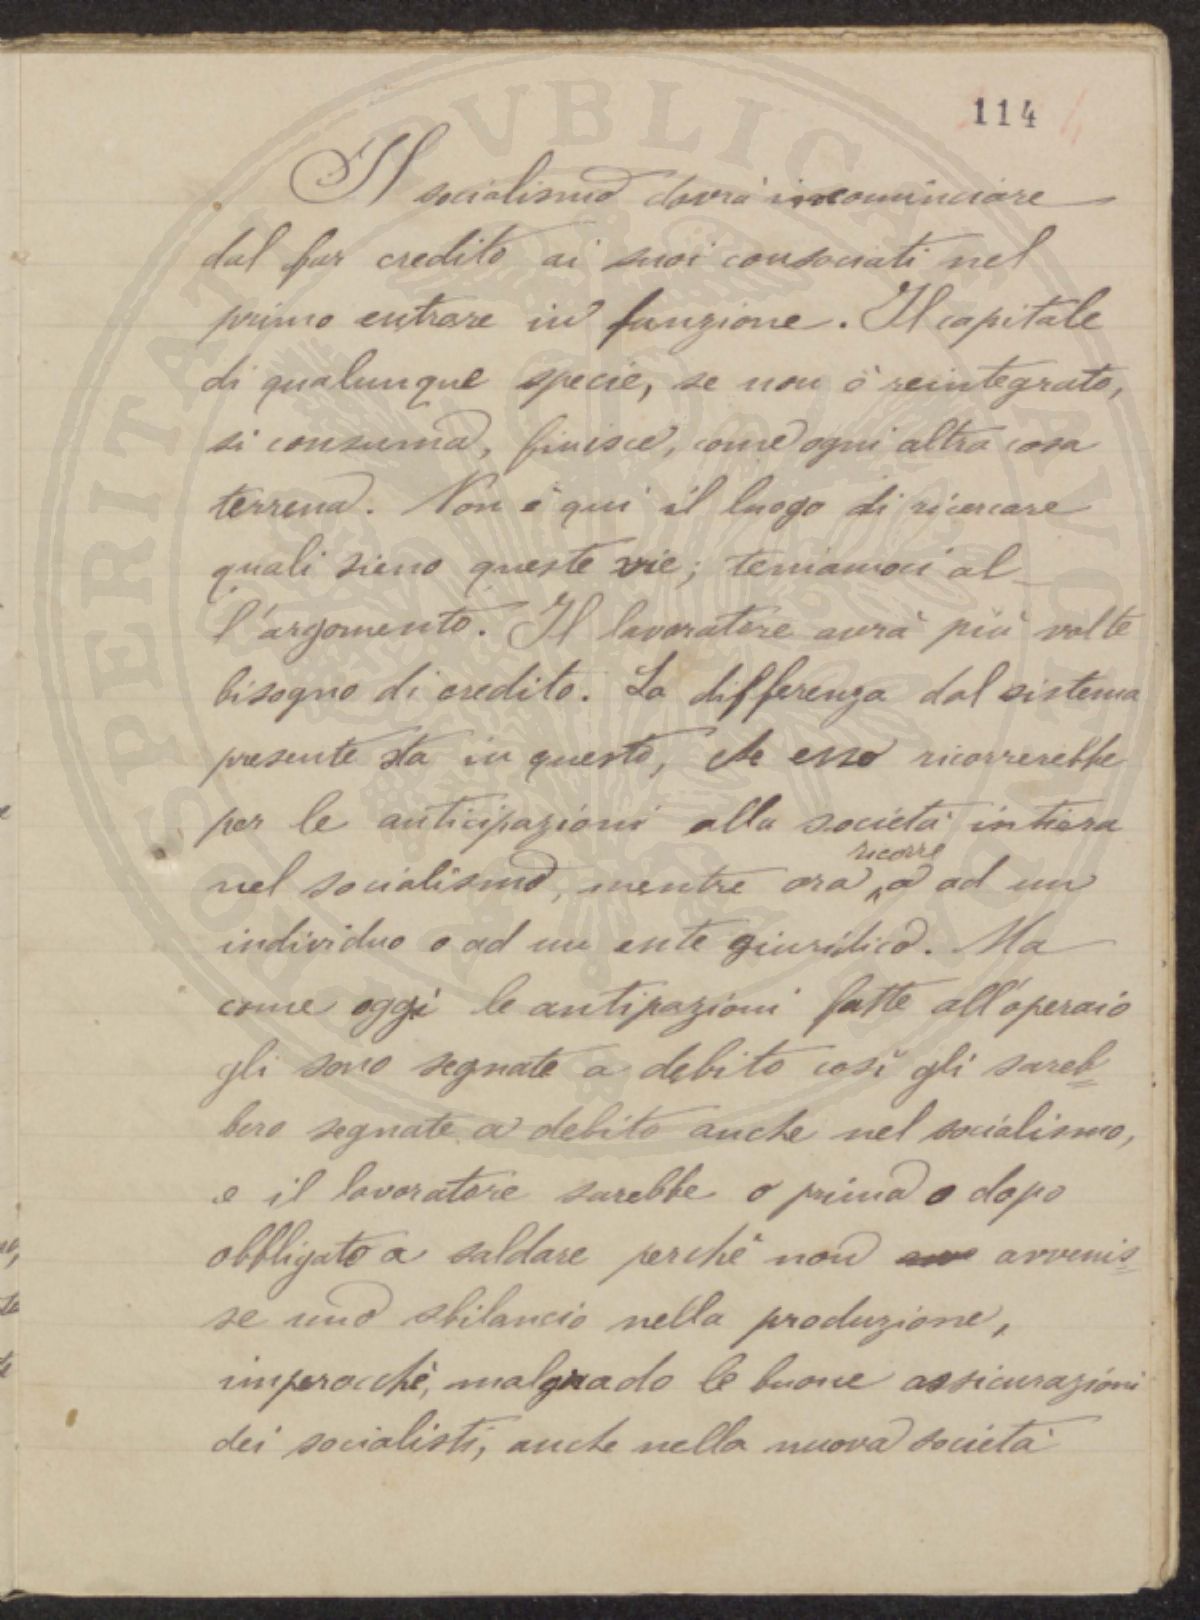 114
Il socialismo dovrà incominciare
dal far credito ai suoi consociati nel
primo entrare in funzione. Il capitale
di qualunque specie, se non è reintegrato,
si consuma, finisce, come ogni altra cosa
terrena. Non è qui il luogo di ricercare
quali sieno queste vie; teniamoci al-
l'argomento. Il lavoratore avrà più volte
bisogno di credito. La differenza dal sistema
presente sta in questo, che esso ricorrerebbe
per le anticipazioni alla società intiera
ricorre
nel socialismo, mentre ora a ad un
individuo o ad un ente giuridico. Ma
come oggi le antipazioni fatte all'operaio
gli sono segnate a debito così gli sareb=
bero segnate a debito anche nel socialismo,
e il lavoratore sarebbe o prima o dopo
obbligato a saldare perchè non avvenis=
se uno sbilancio nella produzione,
imperocchè, malgrado le buone assicurazioni
dei socialisti, anche nella nuova società